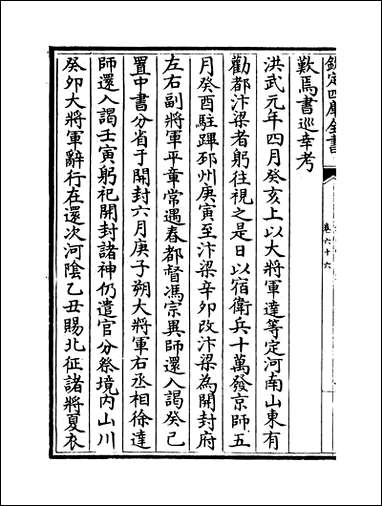 欽定四庫全書
卷六十六
歎焉書巡幸考
洪武元年四月癸亥上以大將軍達等定河南山東有
勸都汴梁者躬往視之是日以宿衛兵十萬發京師五
月癸酉駐蹕邳州庚寅至汴梁辛卯改汴梁為開封府
左右副將軍平章常遇春都督馮宗異師還入謁癸已
置中書分省于開封六月庚子朔大將軍右丞相徐達
師還入謁壬寅躬祀開封諸神仍遣官分祭境内山川
癸卯大將軍辭行在還次河陰乙丑賜北征諸將夏衣